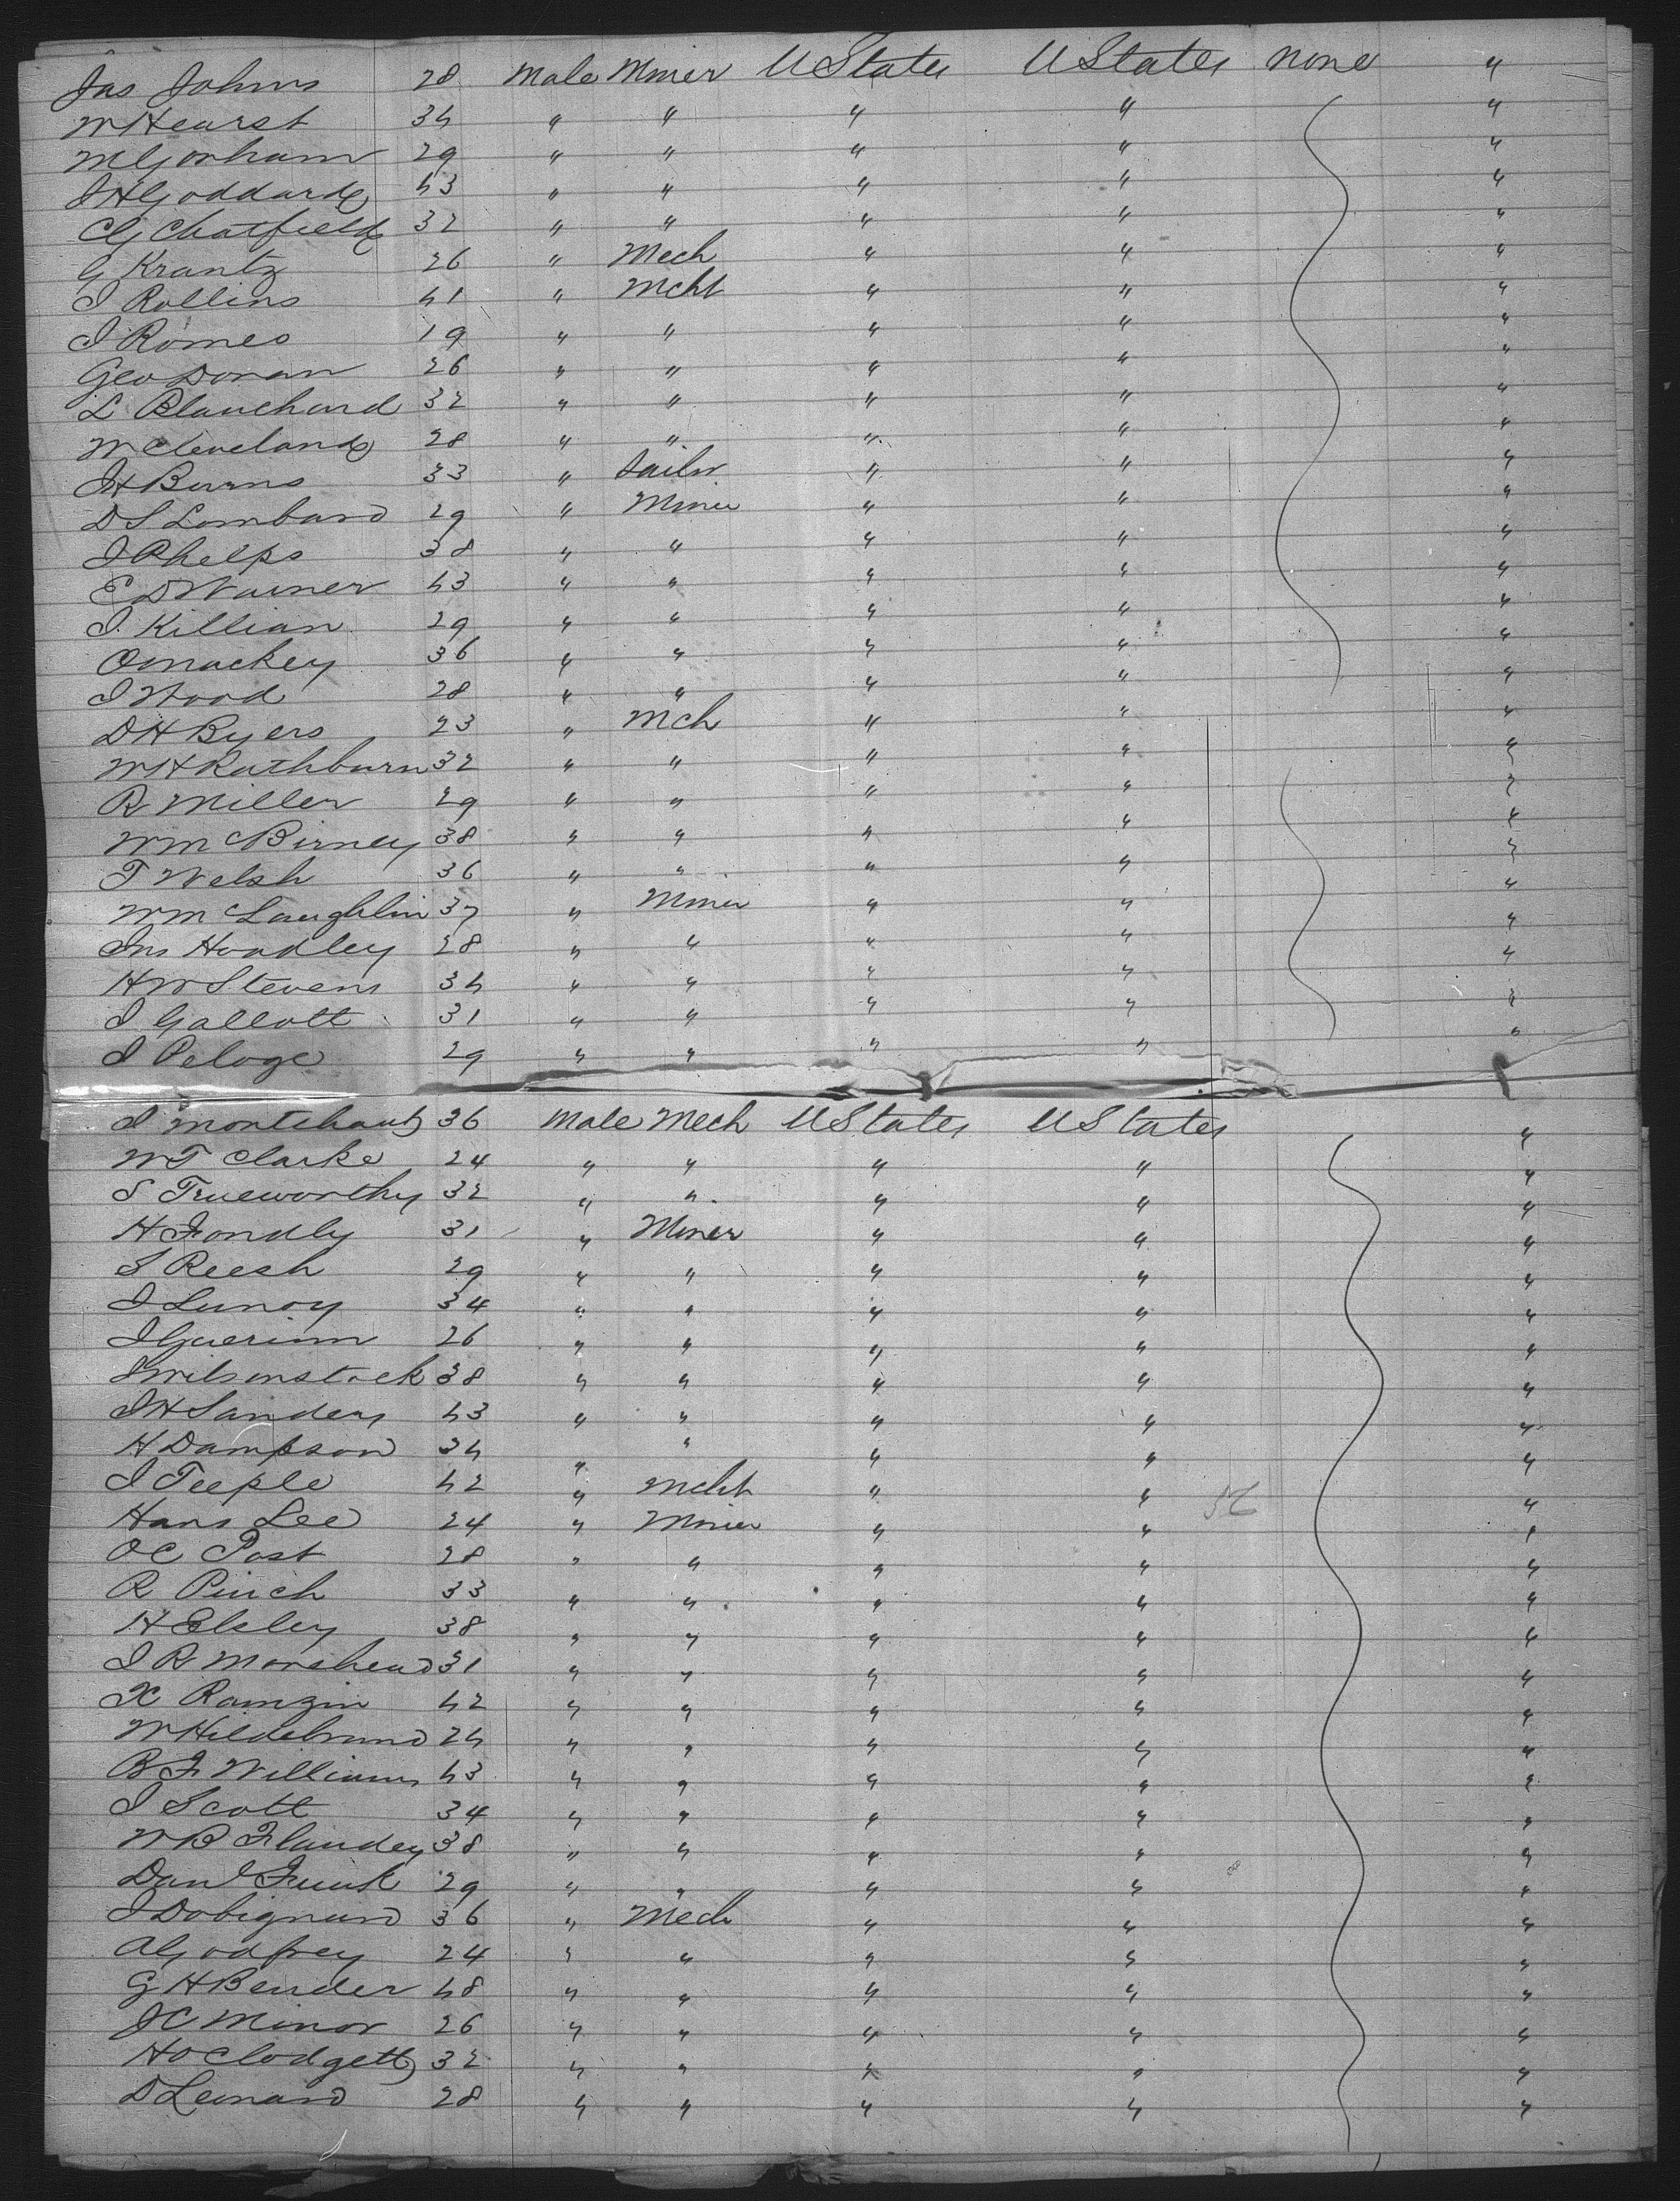 Jas Johns 28 Male Miner UStates UStates None "
W Hearst 34 " " " " "
M Gorham 29 " " " " "
J H Goddard 43 " " " " "
C G Chatfield 32 " " " " "
G Krantz 26 " Mech " " "
J Rollins 41 " Mcht " " "
J Romeo 19 " " " " "
Geo Doran 26 " " " " "
L Blanchard 32 " " " " "
W Cleveland 28 " " " " "
J H Burns 33 " Sailor " " "
D S Lombard 29 " Miner " " "
J Phelps 38 " " " " "
E D Warner 43 " " " " "
J. Killian 29 " " " " "
O Mackey 36 " " " " "
J Wood 28 " " " " "
D H Byers 23 " Mch " " "
W H Rathburn 32 " " " " "
R Miller 29 " " " " "
W McBirney 38 " " " " "
T Welsh 36 " " " " "
W McLaughlin 37 " Miner " " "
Jns Hoadley 28 " " " " "
H W Stevens 34 " " " " "
J Gallott 31 " " " " "
J Peloge 29 " " " " "
J 36 Male Mech UStates UStates "
W T Clarke 24 " " " " "
S Trueworthy 32 " " " " "
H Fondly 31 " Miner " " "
S Reesh 29 " " " " "
J Lunoy 34 " " " " "
J Guerinn 26 " " " " "
J Wilsonstock 38 " " " " "
J H Sanders 43 " " " " "
H Dampson 34 " " " " "
J Teeple 42 " Mcht " " "
Hans Lee 24 " Miner " " "
O C Post 28 " " " " "
R Pinch 33 " " " " "
H Elsley 38 " " " " "
J R Morehead 31 " " " " "
X Ramzin 42 " " " " "
W Hildebrand 24 " " " " "
B F Williams 43 " " " " "
J Scott 34 " " " " "
W B Flandey 38 " " " " "
Danl Funk 29 " " " " "
J Dobignard 36 " Mech " " "
A Godfrey 24 " " " " "
G H Bender 48 " " " " "
J C Minor 26 " " " " "
H O Clodgett 32 " " " " "
D Leonard 28 " " " " "